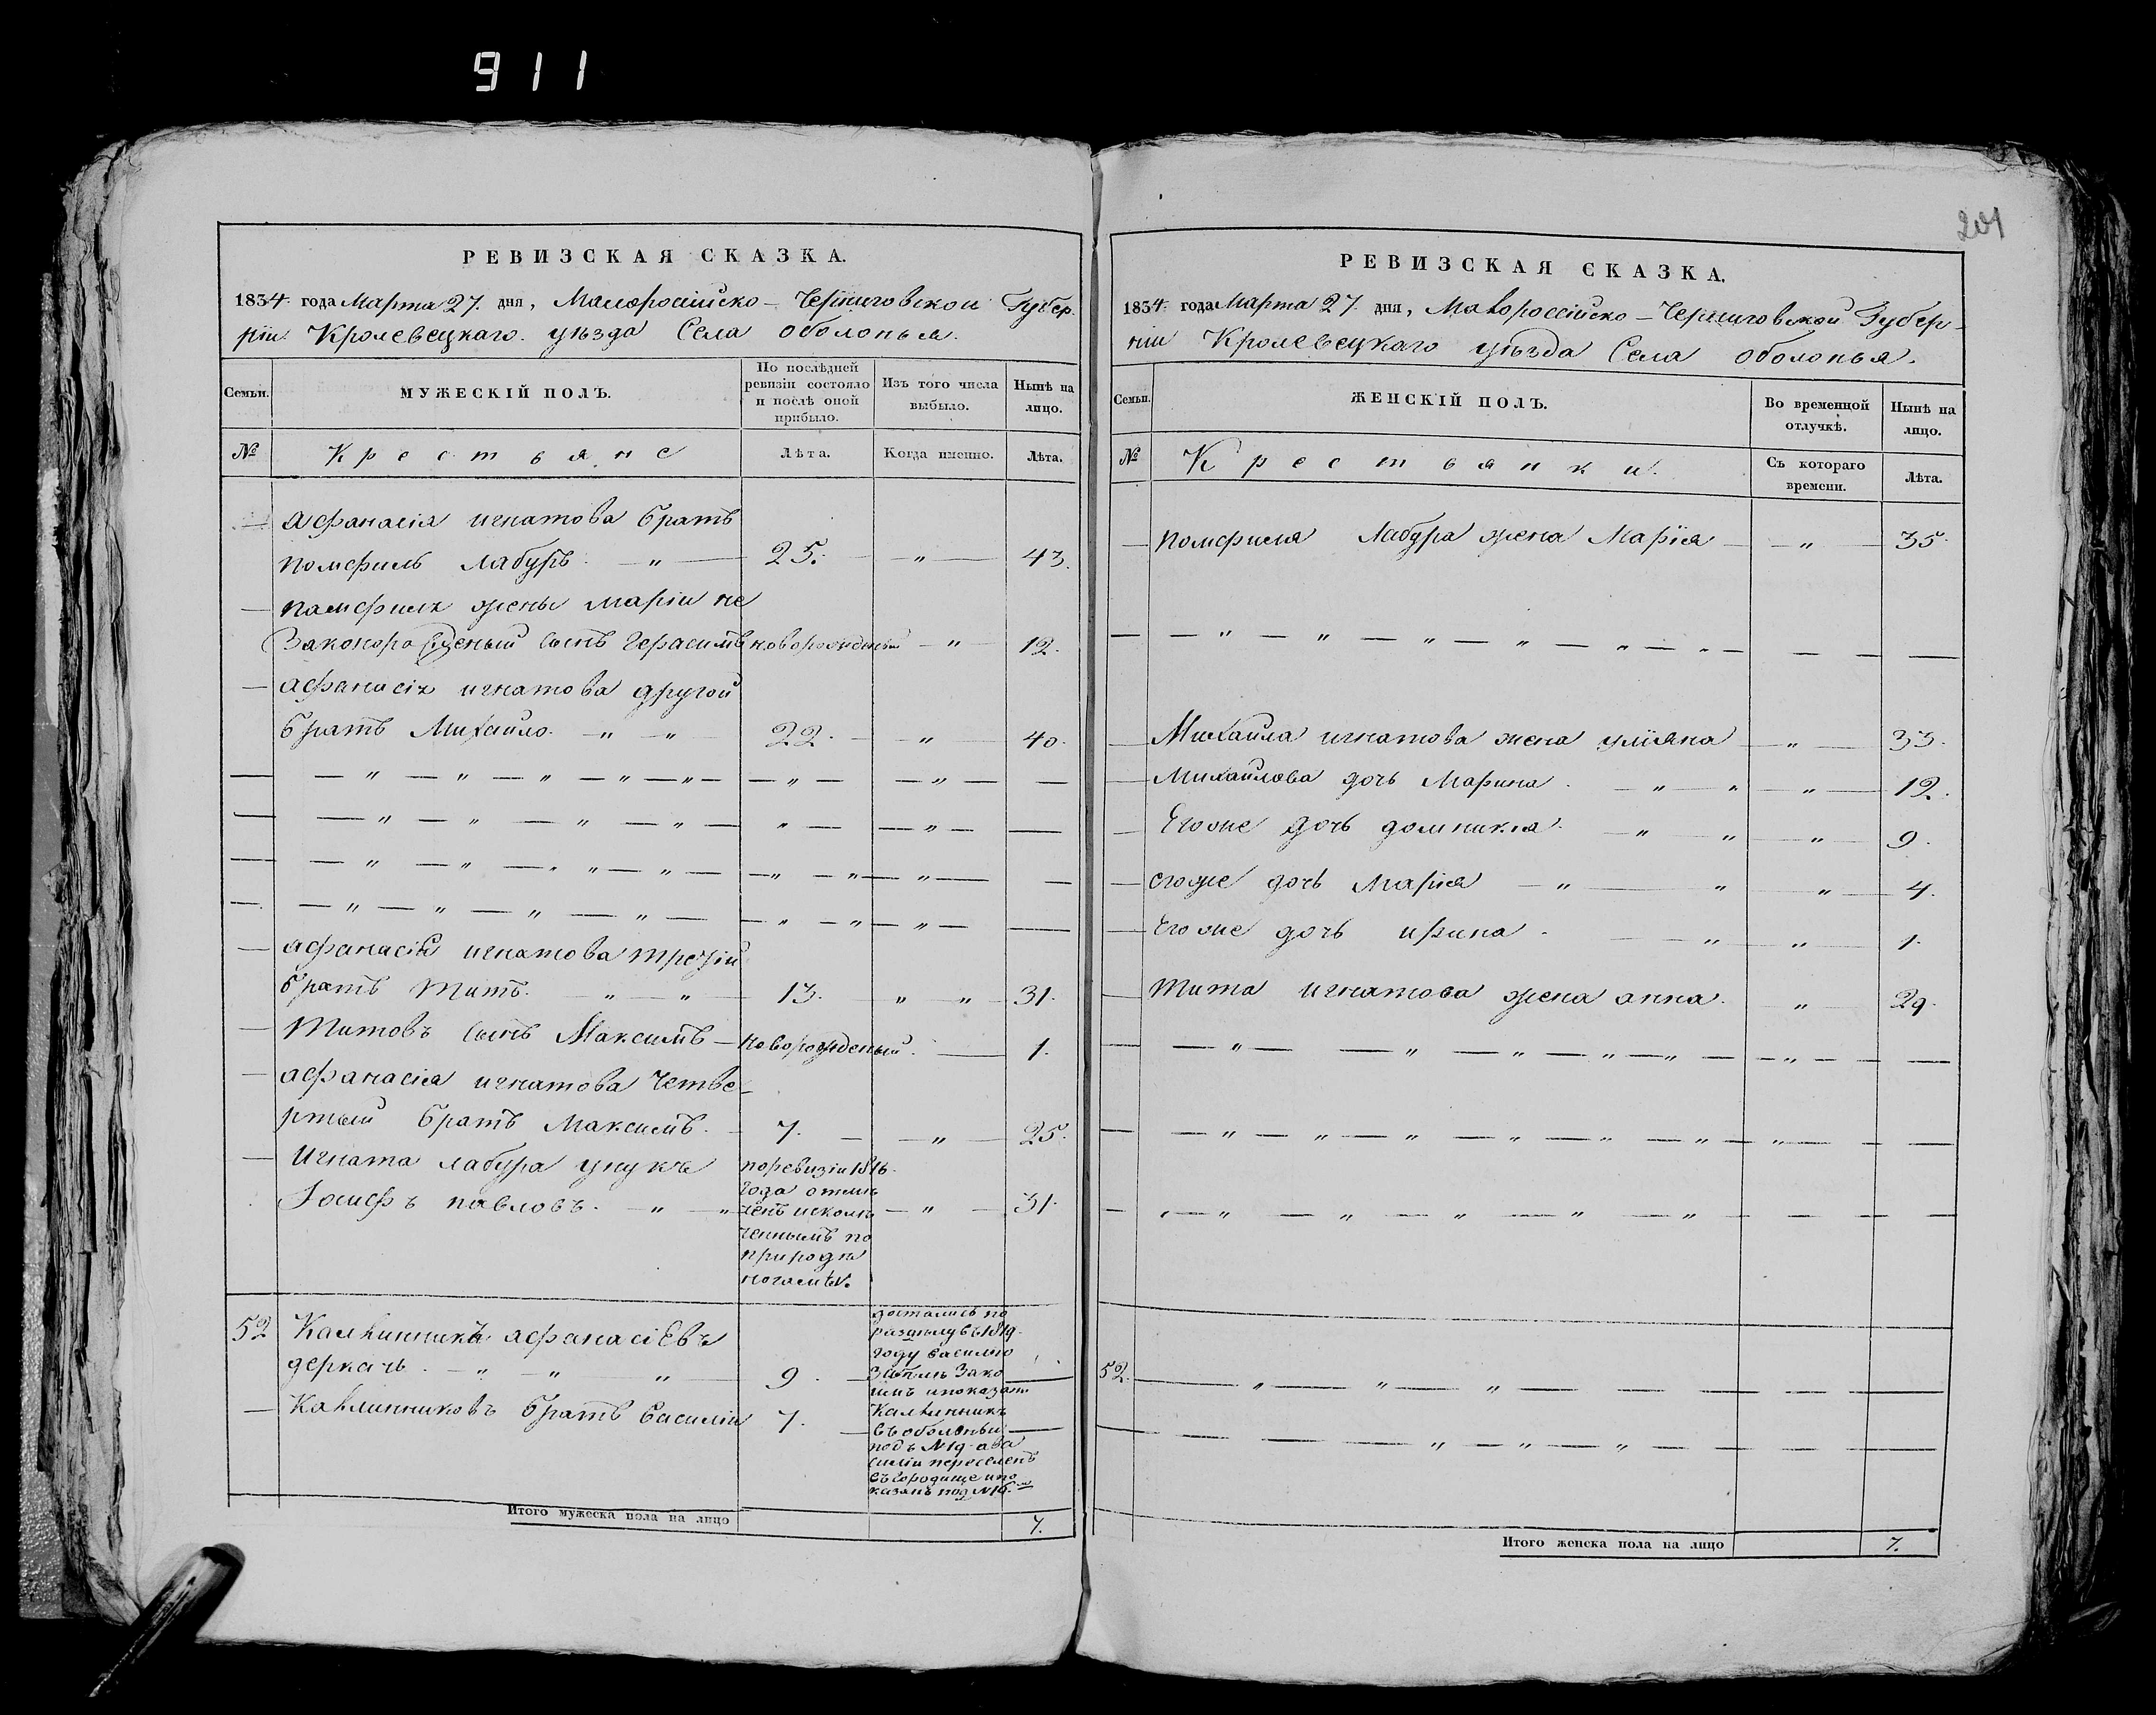 911
201
РЕВИЗСКАЯ СКАЗКА.
1834 года Марта 27. дня, Малороссійско - Черниговской Губер
ніи Кролевецкаго уѣзда Села оболонья.
Семьи.
МУЖЕСКІЙ ПОЛЪ.
По послѣдней ревизіи состояло и послѣ оной прибыло.
Изъ того числа выбыло.
Нынѣ на лицо.
№ Крестьяне Лѣта. Когда именно. Лѣта.
— афанасія игнатова братъ
помфилъ лабуръ. — " — 25. — " — 43.
— памфила жены маріи не
законорожденый сынъ герасимъ новорожденый — " — 12.
— афанасія игнатова другой
братъ Михайло. — " — " 22. — " 40.
— — " — " — " — " — " — — " — — " — —
— — " — " — " — " — " — — " — —
— — " — " — " " — " — — " — " — " — —
— — " — " — " — " — — " — " — " — —
— афанасія игнатова третій
братъ титъ. — " " 13. " " 31.
— Титовъ сынъ Максимъ — новорожденый. — 1.
— афанасія игнатова четве-
ртый братъ Максимъ. — 7. — — " — 25.
— Игната лабура унукъ
Іосифъ павловъ. — " — " поревизіи 1816 года отмѣченъ искалѣченнымъ по природѣ ногами. — " — 31.
52 Калинникъ афанасіевъ
деркачъ. — " — " " — 9. —
— Калинниковъ братъ василій 7. —
достались по
раздѣлу въ 1819
году василію
показаны
Калинникъ
въ оболоньи
подъ №19 а ва
силій переселенъ
въ городище и по
казанъ под №16.
Итого мужеска пола на лицо 7.
РЕВИЗСКАЯ СКАЗКА.
1834 года Марта 27. дня, Малороссійско - Черниговской Губер-
ніи Кролевецкаго уѣзда Села оболонья.
Семьи.
ЖЕНСКІЙ ПОЛЪ.
Во временной отлучкѣ.
Нынѣ на лицо.
№ Крестьянки. Съ котораго времени. Лѣта.
— помфила Лабура жена Марія — — " — 35.
— — " — " — " — " — " — " — — — —
— Михайла игнатова жена уліяна — " — 33.
— Михайлова дочь Марина. — " — " — " — 12.
— Егоже дочь домникія. — " " " — 9.
— егоже дочь Марія — " " " — 4.
— Егоже дочь ирина. — " — " — 1.
— тита игнатова жена анна. " — 29.
— — " — — " — " — " — " — — " — — —
— — " — " — " — " — " — " — " — — —
— — " — " — " — " — " — — — —
52. — " — " — " — — — —
— — — " — " — " — — — —
Итого женска пола на лицо 7.